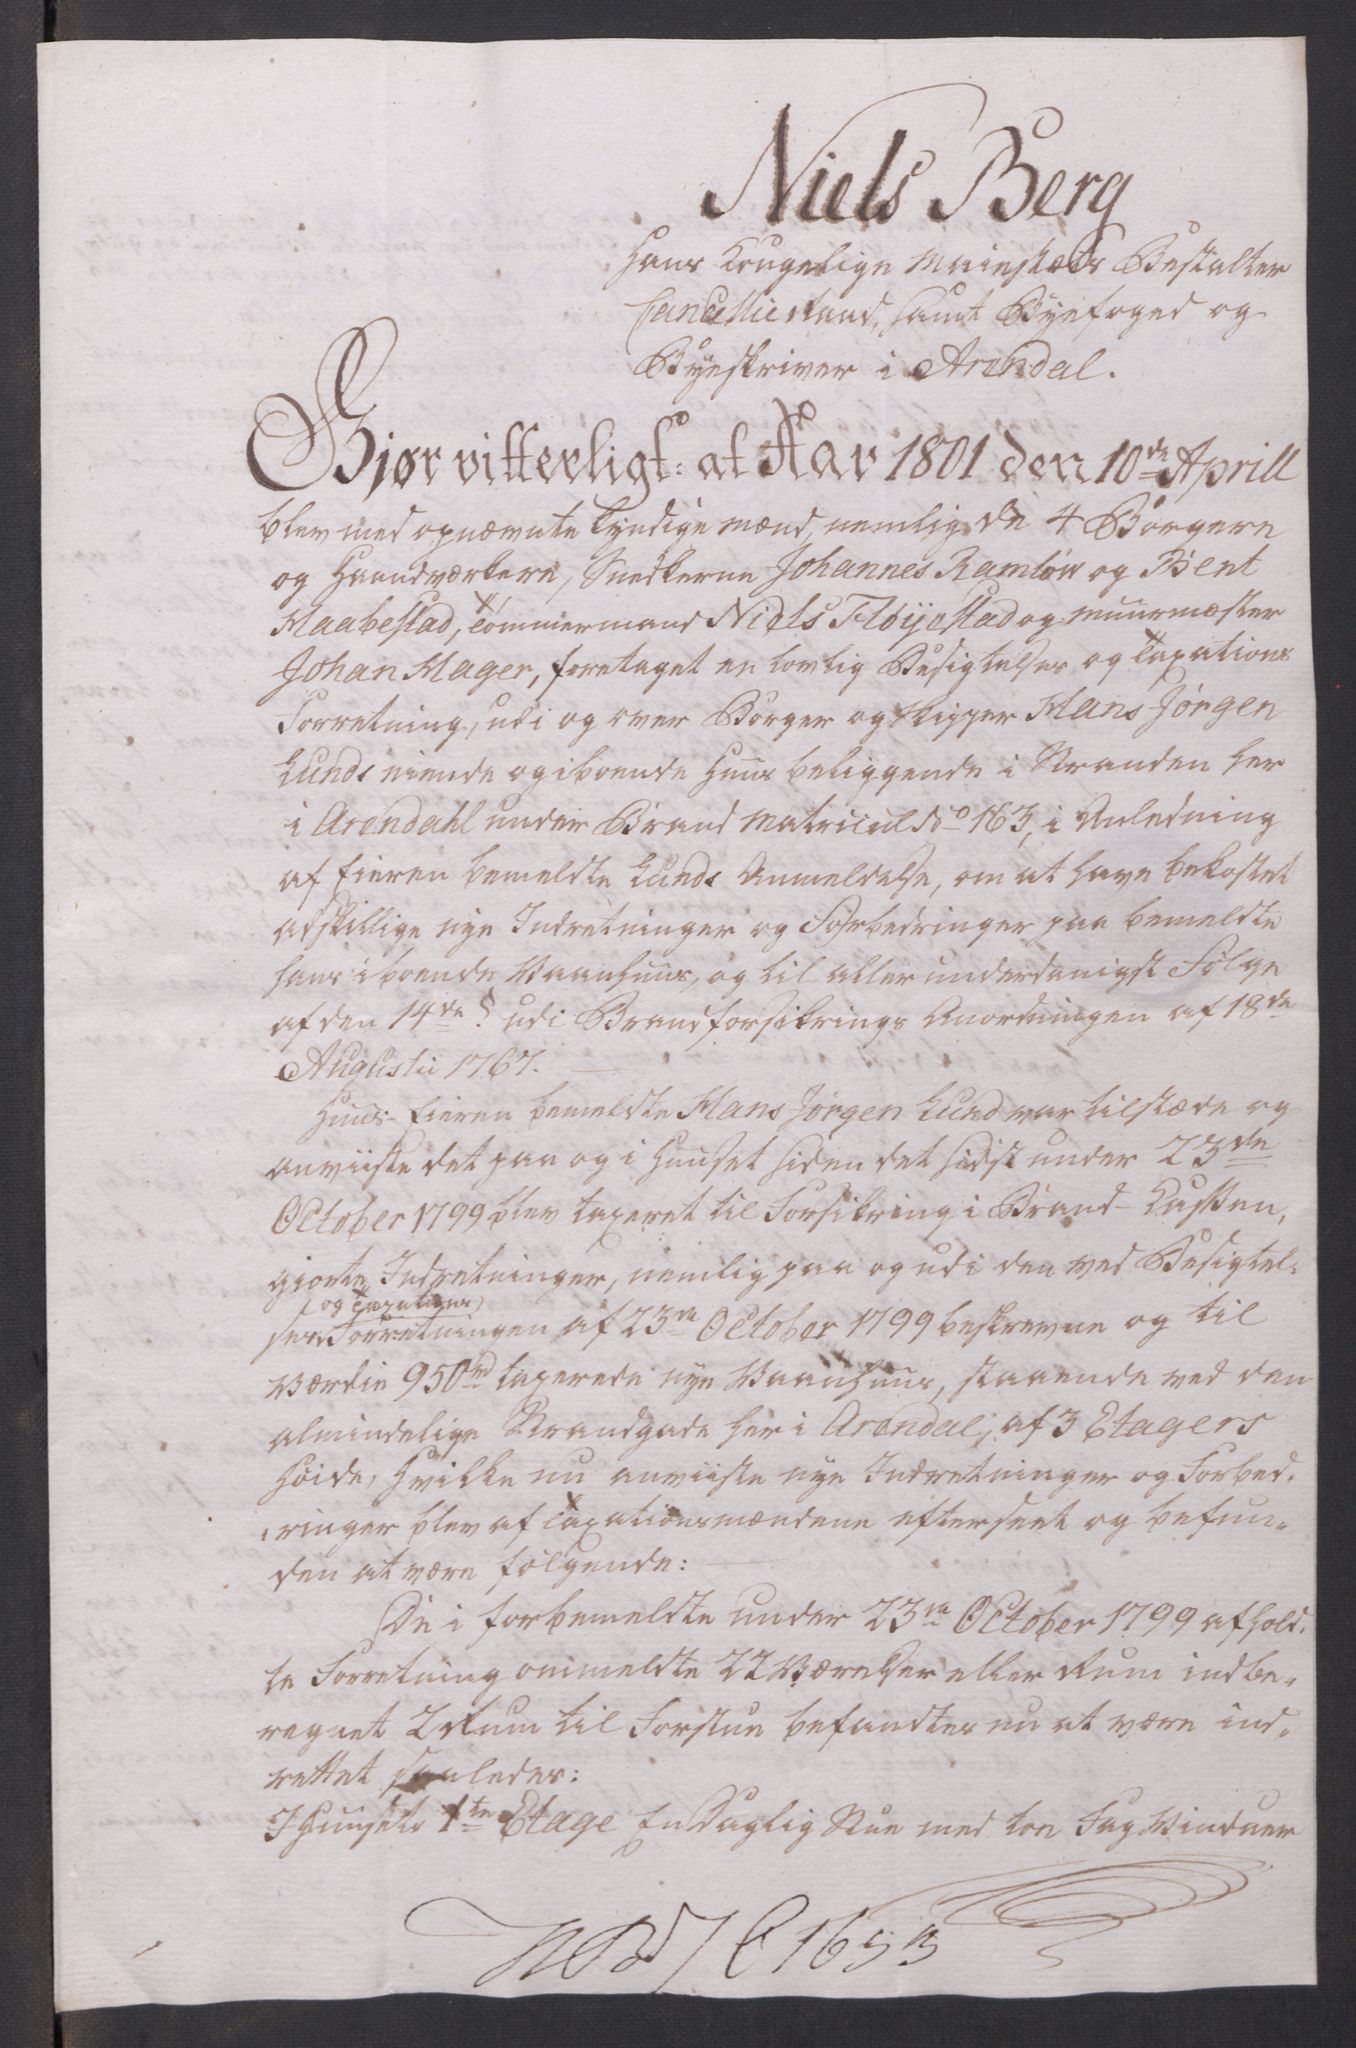 Niels Berg
Hans Kongelige Maiestæts Bestalter
Cancellie Raad, samt Byefoged og
Byeskriver i Arendal.
Giør vitterligt: at Aar 1801 den 10de Aprill
blev med opnævnte kyndige mænd, nemlig de 4 Borgere
og Haandværkere, Snedkerne Johannes Ramlöw og Bent
Haabestad, Tömmermand Niels Flöijestad og Muurmester
Johan Hager, foretaget en lovlig Besigtelses og Taxations
Forretning, udi og over Borger og Skipper Hans Jörgen
Lunds eiende og iboende Huus beliggende i Stranden her
i Arendahl under Brand Matricul No 163, i Anledning
af Eieren bemeldte Lunds Anmeldelse, om at have bekostet
adskillige nye Indretninger og Forbedringer paa bemeldte
hans iboende Vaanhuus, og til allerunderdanigst Fölge
af den 14de § udi Brandforsikrings Anordningen af 18de
Augustii 1767.
Huus-Eieren bemeldte Hans Jörgen Lund var tilstæde og
anviiste det paa og i Huuset siden det sidst under 23de
October 1799 blev taxeret til Forsikring i Brand-Cassen,
giorte Indretninger, nemlig paa og udi den ved Besigtel-
(og Taxations)
ses Forretningen af 23de October 1799 beskrevne og til
Værdie 950rd taxerede nye Vaanhuus, staaende ved den
almindelige Strandgade her i Arendal, af 3 Etagers
Höide, hvilke nu anviiste nye Indretninger og Forbed-
ringer blev af Taxationsmændene efterseet og befun-
den at være fölgende:
De i forbemeldte under 23de October 1799 afhold-
te Forretning ommeldte 22 Værelser eller Rum indbe-
regnet 2 Rum til Forstue befandtes nu at være ind-
rettet saaledes:
I Huusets 1te Etage En Daglig Stue med toe Fag Vinduer